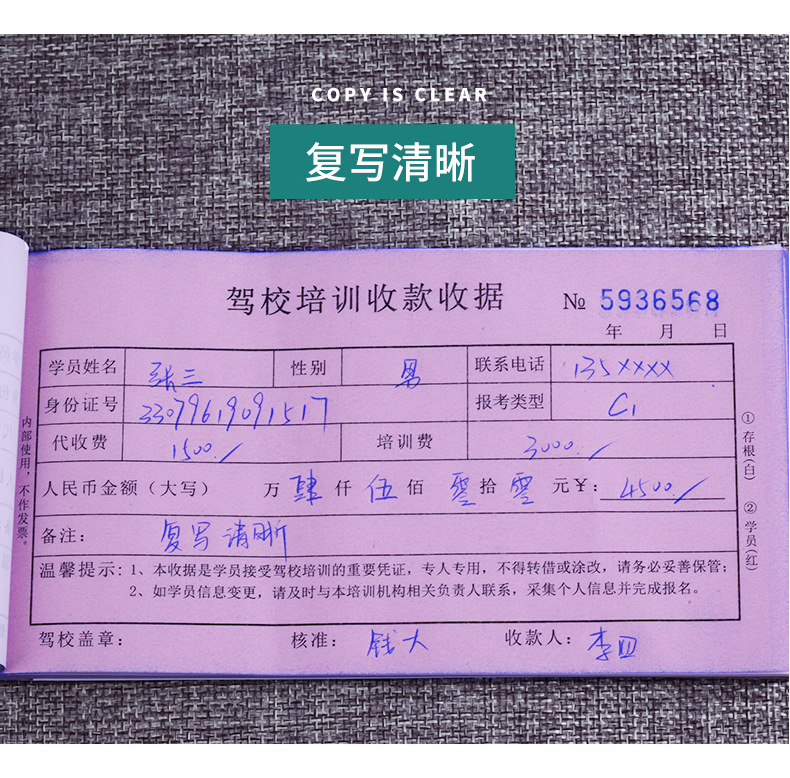 COPY IS CLEAR
复写清晰
驾校培训收款收据 № 5936568
年 月 日
学员姓名 张三 性别 男 联系电话 135××××
身份证号 33079619091517 报考类型 C1
代收费 1500./ 培训费 3000./
人民币金额（大写） 万 肆 仟 伍 佰 零 拾 零 元￥: 4500./
备注: 复写清晰
温馨提示: 1、本收据是学员接受驾校培训的重要凭证，专人专用，不得转借或涂改，请务必妥善保管;
2、如学员信息变更，请及时与本培训机构相关负责人联系，采集个人信息并完成报名。
驾校盖章: 核准: 钱大 收款人: 李四
内部使用，不作发票。
①存根(白) ②学员(红)